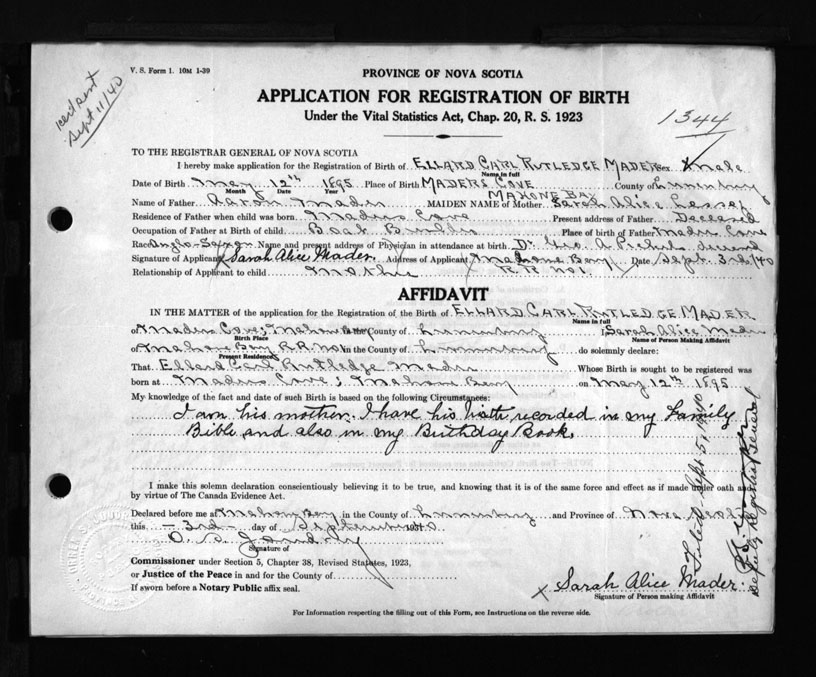 V. S. Form 1. 10M 1-39
Sept 11/40
PROVINCE OF NOVA SCOTIA
APPLICATION FOR REGISTRATION OF BIRTH
Under the Vital Statistics Act, Chap. 20, R. S. 1923
1344
TO THE REGISTRAR GENERAL OF NOVA SCOTIA
I hereby make application for the Registration of Birth of ELLARD CARL RUTLEDGE MADER Sex Male
Name in full
Date of Birth May 12th 1895 Place of Birth MADERS COVE County of Lunenburg
Month Day Year
MAHONE BAY
Name of Father Aaron Mader MAIDEN NAME of Mother Sarah Alice
Residence of Father when child was born Maders Cove Present address of Father Deceased
Occupation of Father at Birth of child Boat Builder Place of birth of Father Mader Cove
Race Anglo-Saxon Name and present address of Physician in attendance at birth Dr. Geo. A.
Signature of Applicant Sarah Alice Mader. Address of Applicant Mahone Bay Date Sept. 3rd/40
Relationship of Applicant to child Mother R R No1.
AFFIDAVIT
IN THE MATTER of the application for the Registration of the Birth of ELLARD CARL RUTLEDGE MADER
Name in full
of Maders Cove, Mahone Bay the County of Lunenburg I, Sarah Alice Mader
Birth Place Name of Person Making Affidavit
of Mahone Bay R.R. No1 in the County of Lunenburg do solemnly declare:
Present Residence
That Ellard Carl Rutledge Mader Whose Birth is sought to be registered was
born at Maders Cove, Mahone Bay on May 12th 1895
My knowledge of the fact and date of such Birth is based on the following Circumstances:
I am his mother. I have his birth recorded in my Family
Bible and also in my Birthday Book.
I make this solemn declaration conscientiously believing it to be true, and knowing that it is of the same force and effect as if made under oath and
by virtue of The Canada Evidence Act.
Declared before me at Mahone Bay in the County of Lunenburg and Province of Nova Scotia
this 3rd day of September 1940.
Signature of
Commissioner under Section 5, Chapter 38, Revised Statutes, 1923,
or Justice of the Peace in and for the County of
If sworn before a Notary Public affix seal.
X Sarah Alice Mader.
Signature of Person making Affidavit
For Information respecting the filling out of this Form, see Instructions on the reverse side.
Filed Sept 5, 1940
Deputy Registrar General